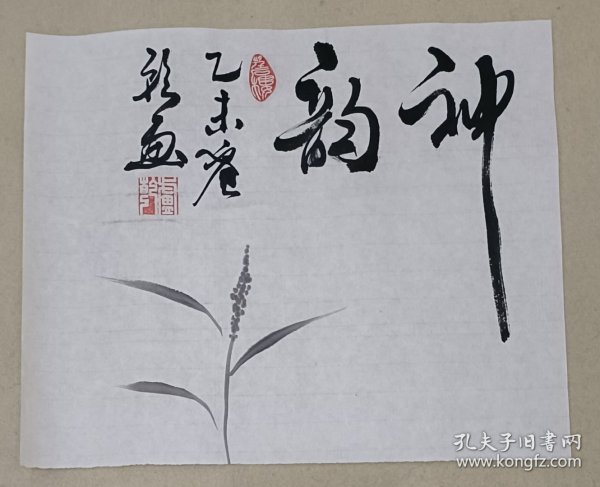 神韵
乙未
画
孔夫子旧书网
www.kongfz.com